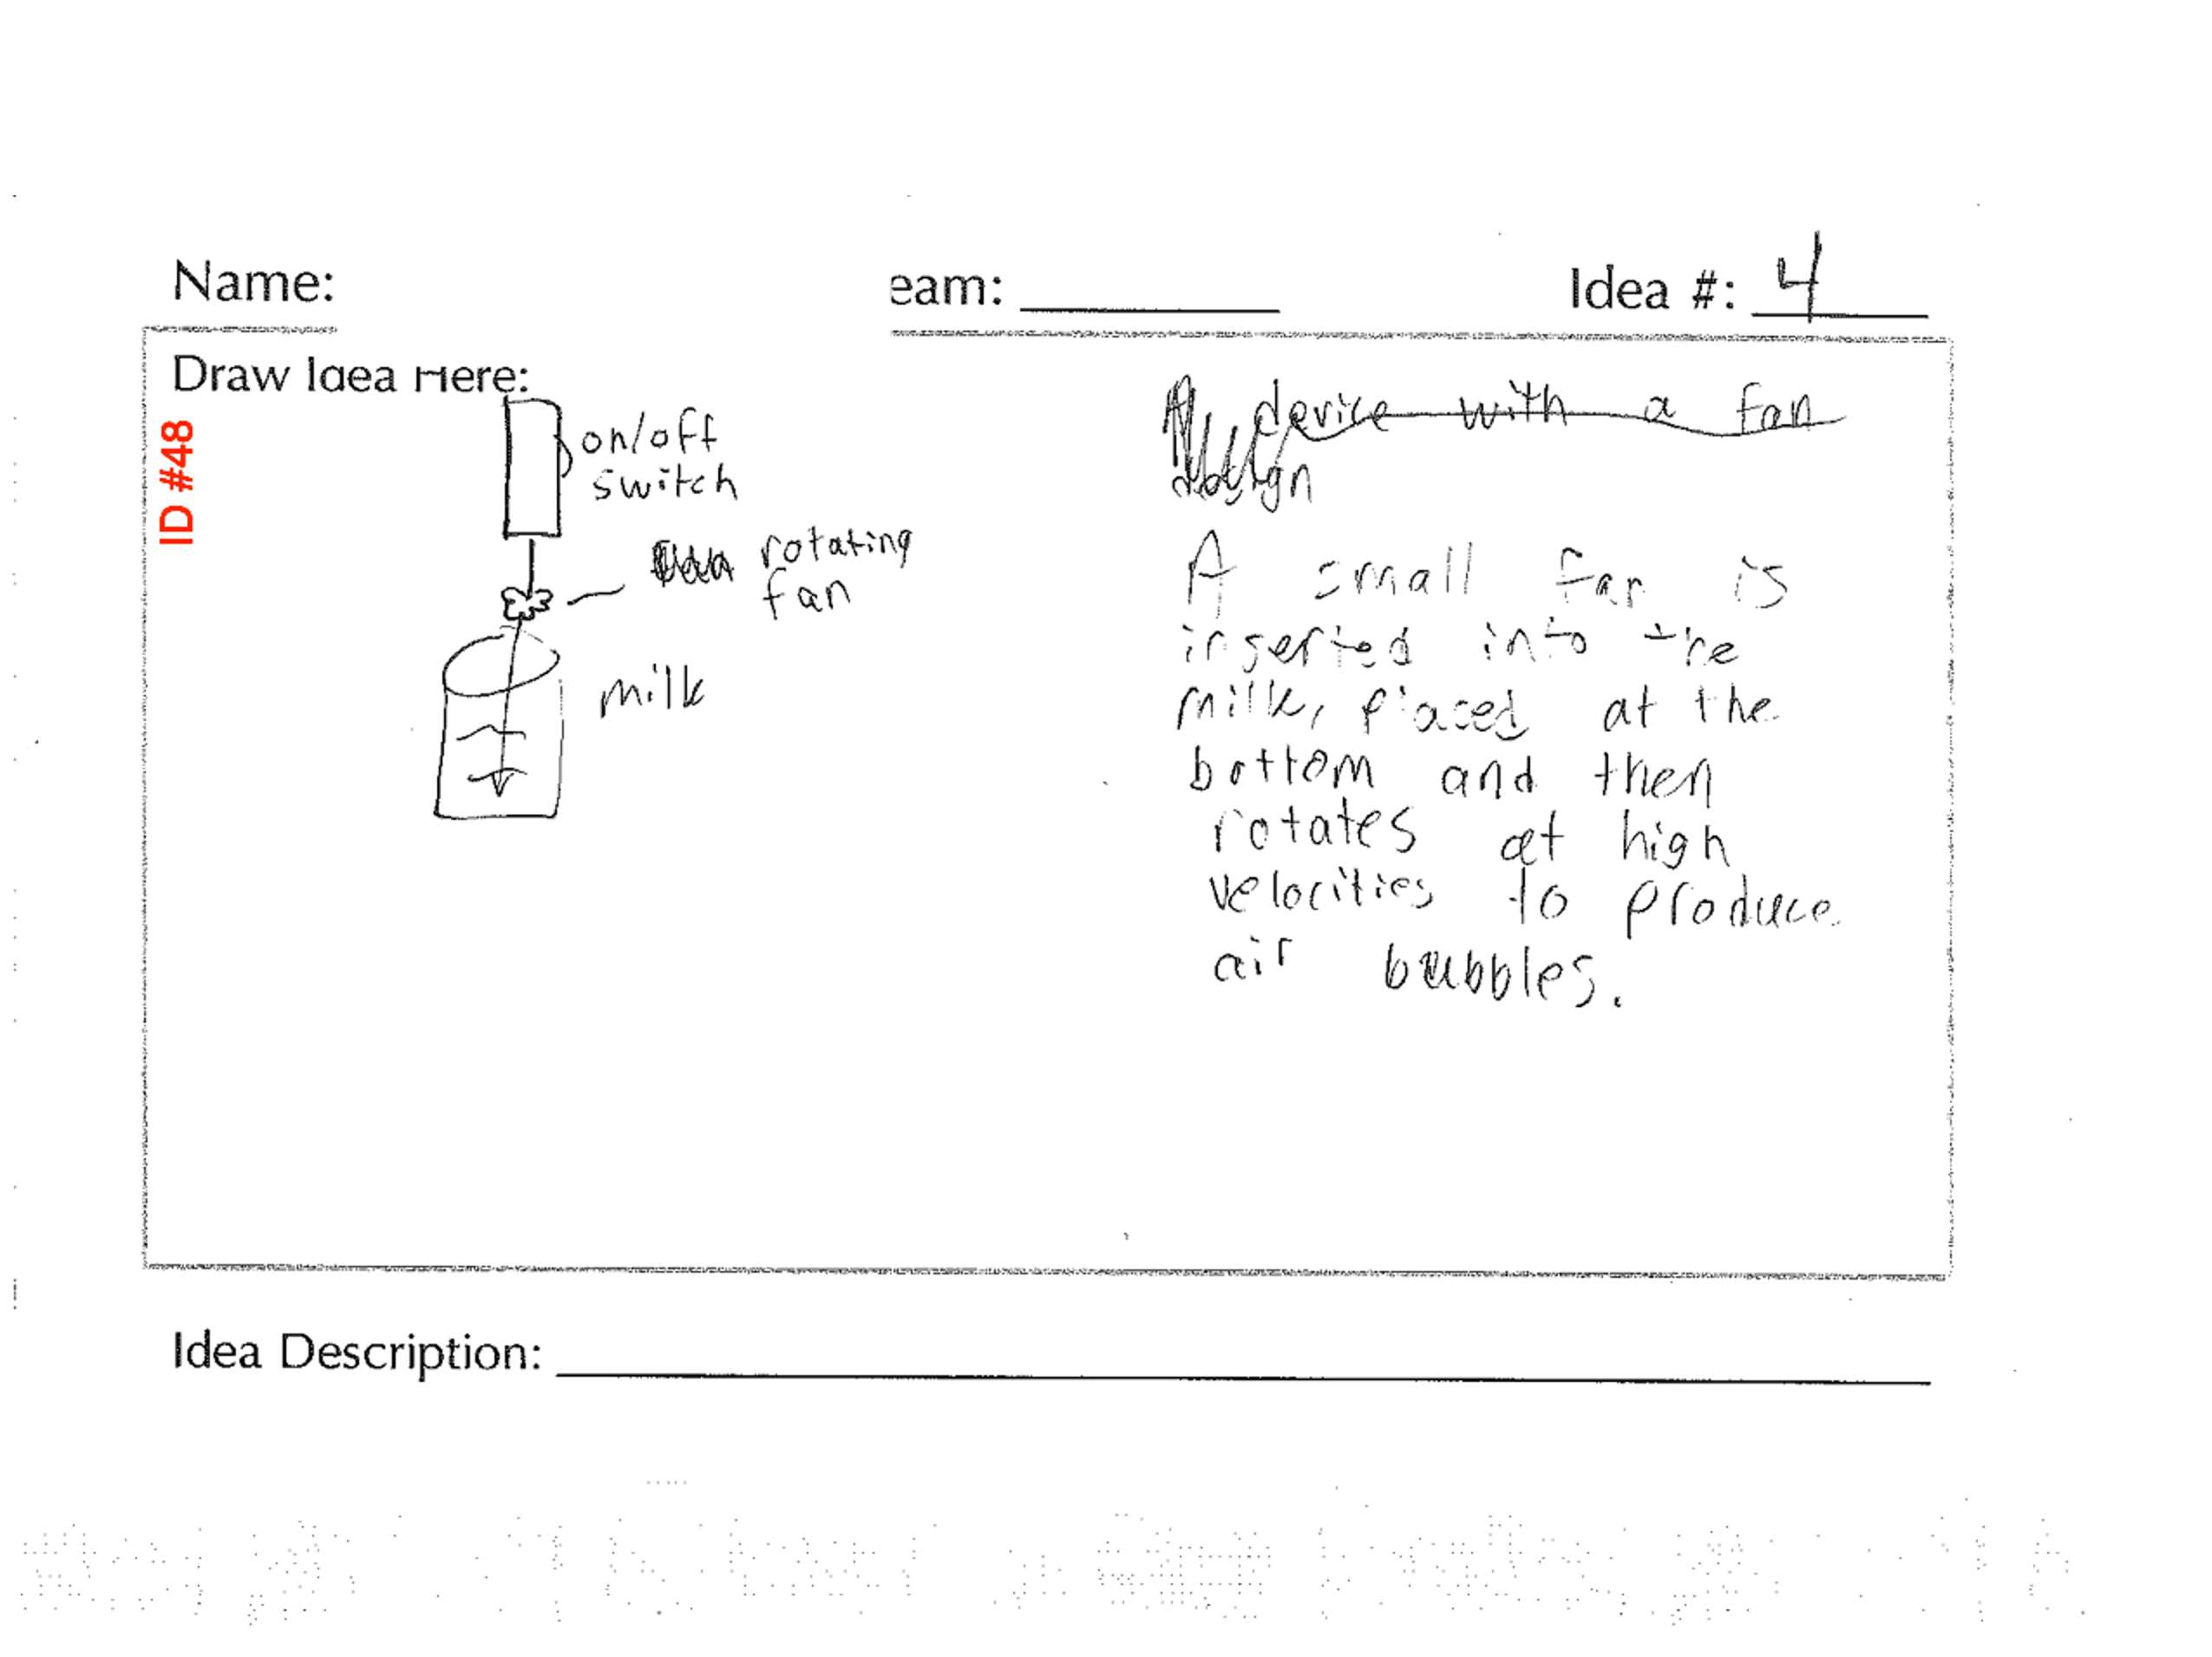 Name:
eam:
Idea #: 4
Draw Idea Here:
ID #48
on/off
switch
rotating
fan
milk
device with a fan
design
A small fan is
inserted into the
milk, placed at the
bottom and then
rotates at high
velocities to produce
air bubbles.
Idea Description: